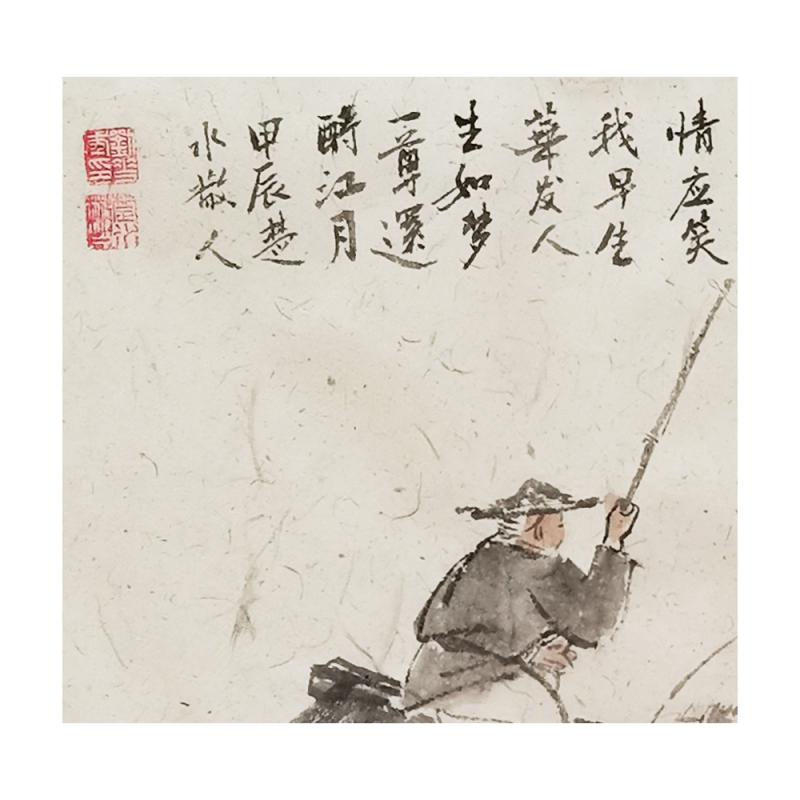 情应笑
我早生
華发人
生如梦
一尊還
酹江月
甲辰楚
水散人